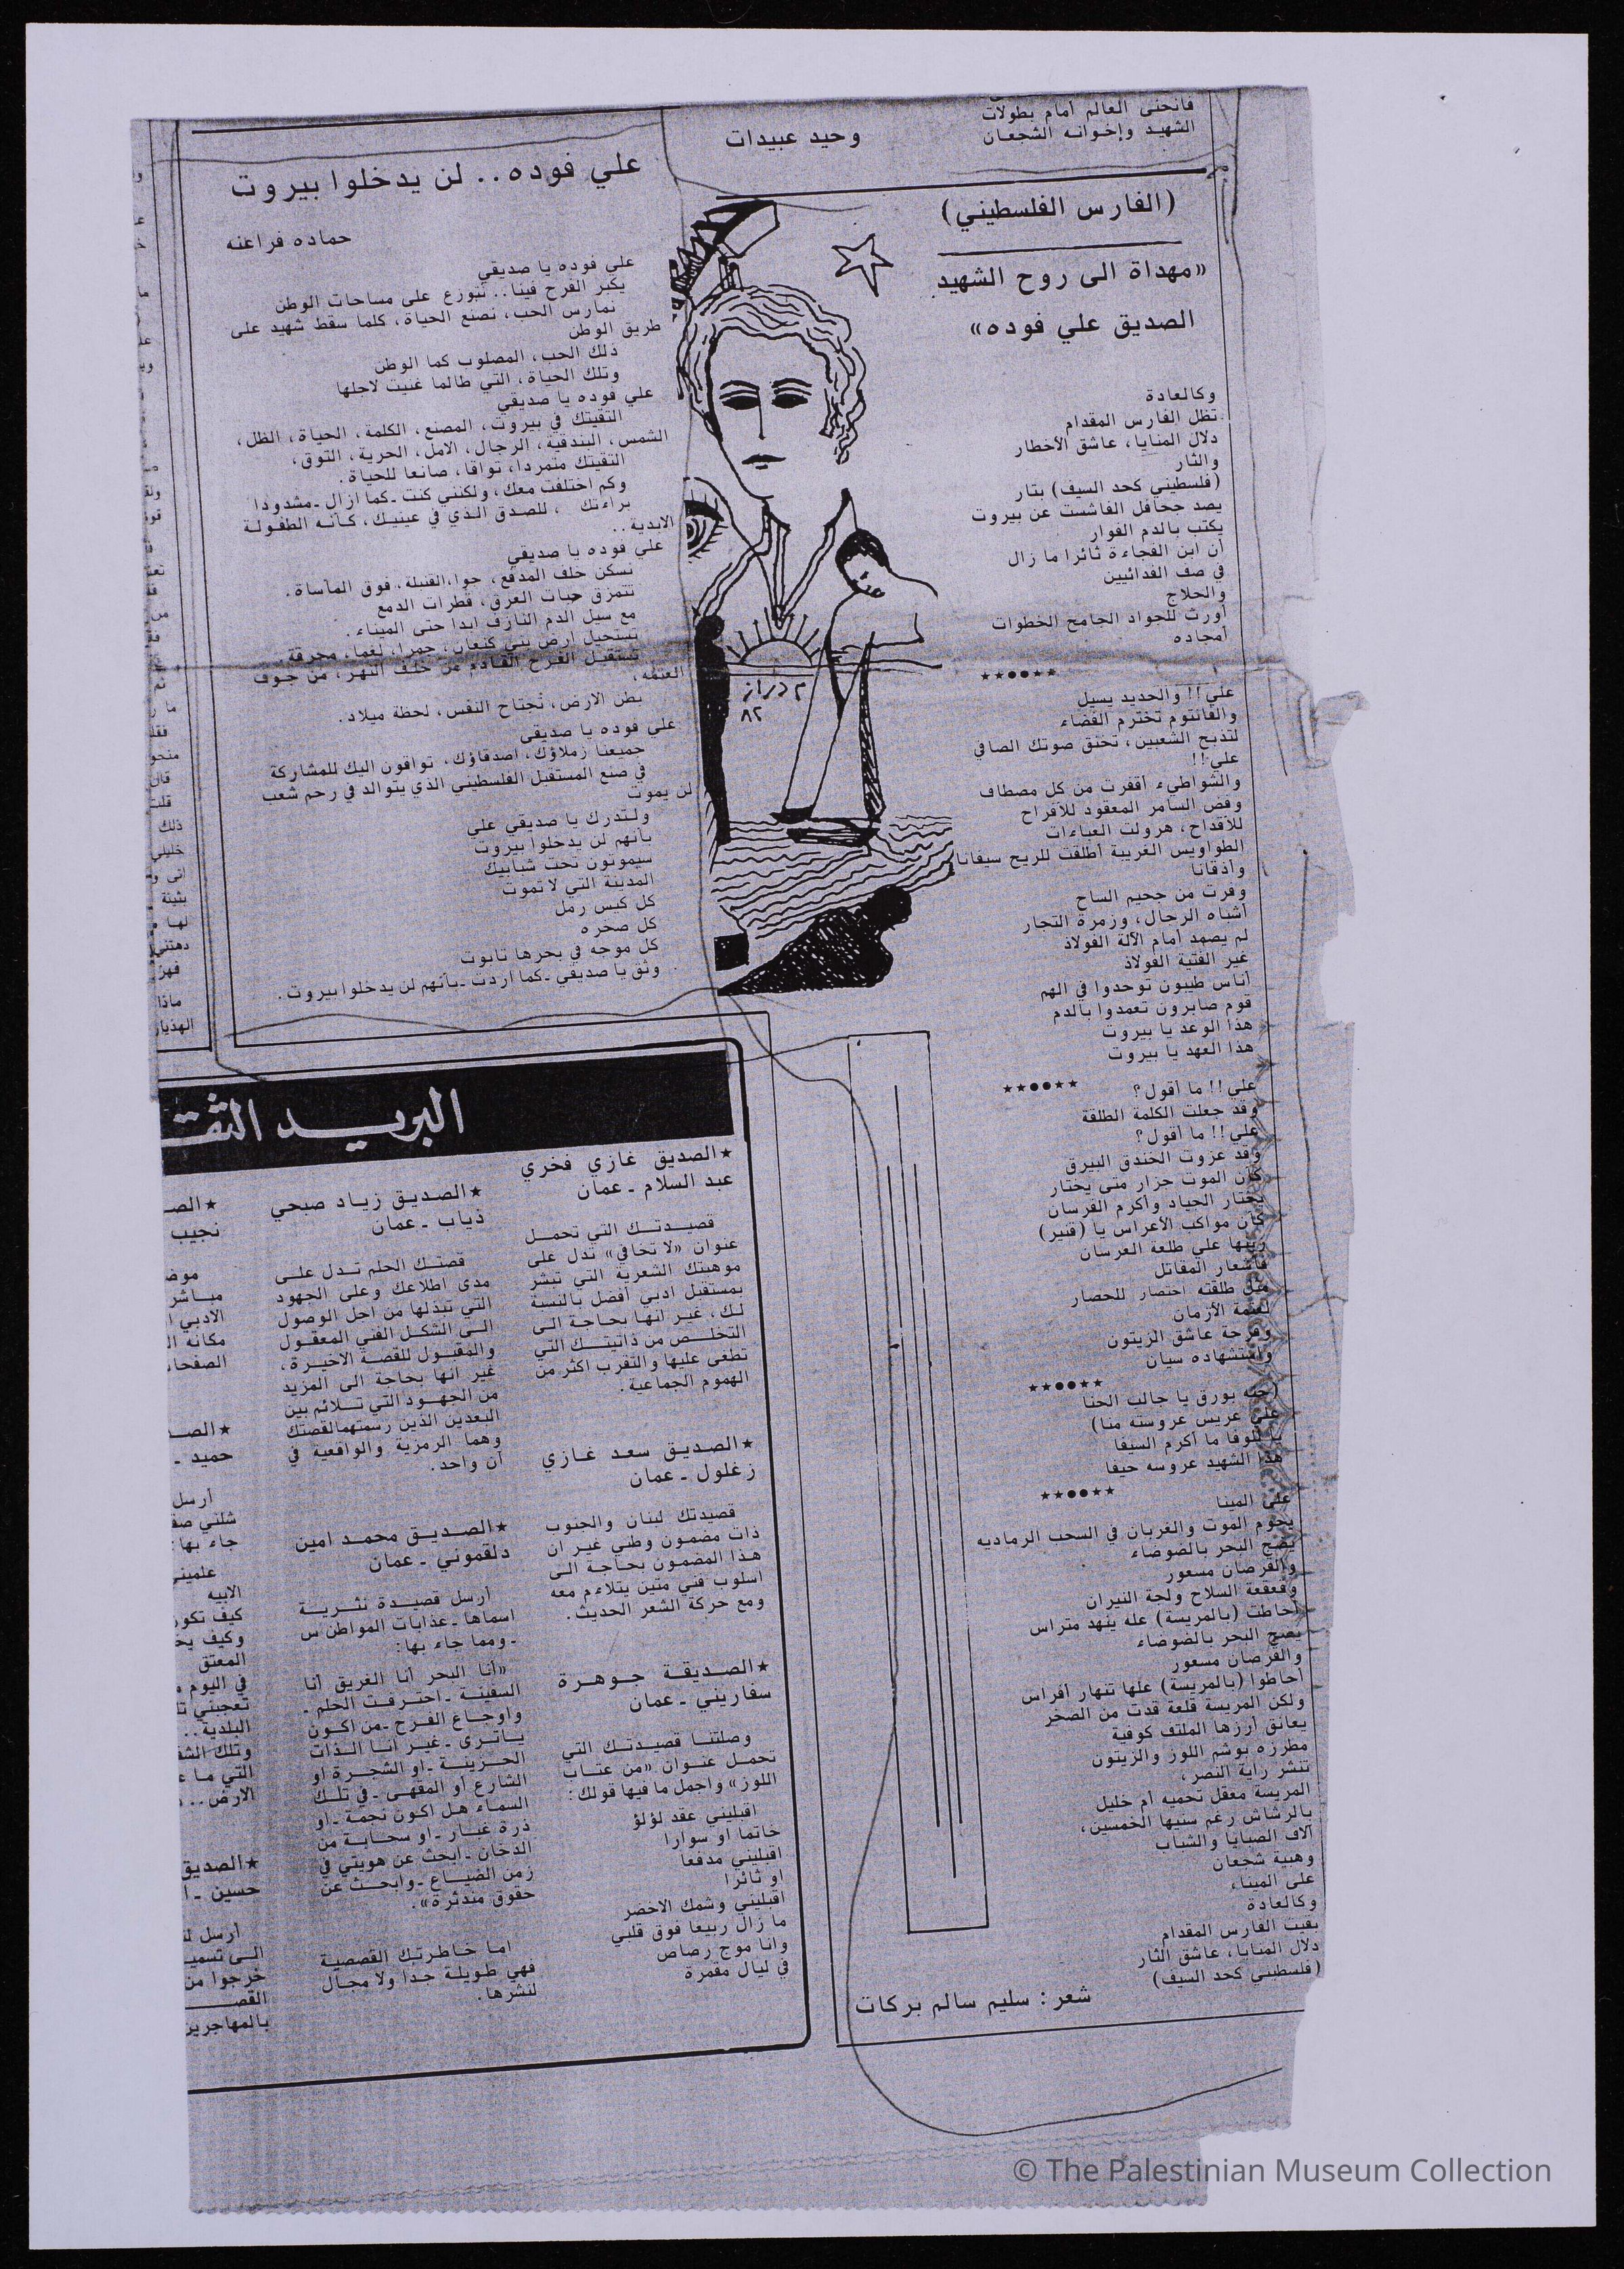 فانحنى العالم أمام بطولات
الشهيد وإخوانه الشجعان
وحيد عبيدات
(الفارس الفلسطيني)
«مهداة الى روح الشهيد
الصديق علي فوده»
وكالعادة
تظل الفارس المقدام
دلال المنايا، عاشق الأخطار
والثار
(فلسطيني كحد السيف) بتار
يصد جحافل الفاشست عن بيروت
يكتب بالدم الفوار
أن ابن الفجاءة ثائرا ما زال
في صف الفدائيين
والحلاج
أورث للجواد الجامح الخطوات
أمجاده
★★●●★★
علي!! والحديد يسيل
والفانتوم تخترم الفضاء
لتذبح الشعبين، تخنق صوتك الصافي
علي!!
والشواطيء أقفرت من كل مصطاف
وفض السامر المعقود للأفراح
للأقداح، هرولت العباءات
الطواويس الغريبة أطلقت للريح سيقانا
وأذقانا
وفرت من جحيم الساح
أشباه الرجال، وزمرة التجار
لم يصمد أمام الآلة الفولاذ
غير الفتية الفولاذ
أناس طيبون توحدوا في الهم
قوم صابرون تعمدوا بالدم
هذا الوعد يا بيروت
هذا العهد يا بيروت
★★●●★★
علي!! ما أقول؟
وقد جعلت الكلمة الطلقة
علي!! ما أقول؟
وقد عزوت الخندق البيرق
كأن الموت جزار متى يختار
يختار الجياد وأكرم الفرسان
كأن مواكب الأعراس يا (قنير)
علي طلعة العرسان
فأشعار المقاتل
مثل طلقته اختصار للحصار
لعتمة الأزمان
وفرحة عاشق الزيتون
واستشهاده سيان
★★●●★★
بورق يا جالب الحنا
علي عريس عروسته منا)
ما أكرم السيفا
هذا الشهيد عروسه حيفا
★★●●★★
على المينا
يحوم الموت والغربان في السحب الرماديه
يضج البحر بالضوضاء
والقرصان مسعور
وقعقعة السلاح ولجة النيران
أحاطت (بالمريسة) عله ينهد متراس
يضج البحر بالضوضاء
والقرصان مسعور
أحاطوا (بالمريسة) علها تنهار أفراس
ولكن المريسة قلعة قدت من الصخر
يعانق أرزها الملتف كوفية
مطرزه بوشم اللوز والزيتون
تنشر راية النصر،
المريسة معقل تحميه أم خليل
بالرشاش رغم سنيها الخمسين،
آلاف الصبايا والشباب
وهيبة شجعان
على الميناء
وكالعادة
بقيت الفارس المقدام
دلال المنايا، عاشق الثار
(فلسطيني كحد السيف)
شعر: سليم سالم بركات
علي فوده.. لن يدخلوا بيروت
حماده فراعنه
علي فوده يا صديقي
يكبر الفرح فينا.. نتوزع على مساحات الوطن
نمارس الحب، نصنع الحياة، كلما سقط شهيد على
طريق الوطن
ذلك الحب، المصلوب كما الوطن
وتلك الحياة، التي طالما غنيت لاجلها
علي فوده يا صديقي
التقيتك في بيروت، المصنع، الكلمة، الحياة، الظل،
الشمس، البندقية، الرجال، الامل، الحرية، التوق،
التقيتك متمردا، تواقا، صانعا للحياة.
وكم اختلفت معك، ولكنني كنت ـ كما ازال ـ مشدودا
براءتك ، للصدق الذي في عينيك، كأنه الطفولة
الابدية..
علي فوده يا صديقي
نسكن خلف المدفع، جوا، القنبلة، فوق المأساة.
تتمزق حبات العرق، قطرات الدمع
مع سيل الدم النازف ابدا حتى الميناء.
تستحيل ارض بني كنعان، جمرا، لغما، محرقة.
تستقبل الفرح القادم من خلف النهر، من جوف
العتمه،
بطن الارض، تجتاح النفس، لحظة ميلاد.
علي فوده يا صديقي
جميعنا زملاؤك، اصدقاؤك، تواقون اليك للمشاركة
في صنع المستقبل الفلسطيني الذي يتوالد في رحم شعب
لن يموت
ولتدرك يا صديقي علي
بأنهم لن يدخلوا بيروت
سيموتون تحت شبابيك
المدينة التي لا تموت
كل كيس رمل
كل صخره
كل موجه في بحرها تابوت
وثق يا صديقي ـ كما أردت ـ بأنهم لن يدخلوا بيروت.
م دراز
٨٢
منحو
قال
قلت
ذلك
خليلي
بثينة
لها
دهتني
فهز
ماذا
الهذيان
البريـــد الثقـ
★الصديق غازي فخري
عبد السلام ـ عمان
قصيدتك التي تحمل
عنوان «لا تخافي» تدل على
موهبتك الشعرية التي تبشر
بمستقبل ادبي أفضل بالنسبة
لك، غير انها بحاجة الى
التخلص من ذاتيتك التي
تطغى عليها والتقرب اكثر من
الهموم الجماعية.
★الصديق سعد غازي
زغلول ـ عمان
قصيدتك لبنان والجنوب
ذات مضمون وطني غير ان
هذا المضمون بحاجة الى
اسلوب فني متين يتلاءم معه
ومع حركة الشعر الحديث.
★الصديقة جوهرة
سفاريني ـ عمان
وصلتنا قصيدتك التي
تحمل عنوان «من عتاب
اللوز» واجمل ما فيها قولك:
اقبليني عقد لؤلؤ
خاتما او سوارا
اقبليني مدفعا
او ثائرا
اقبليني وشمك الاخضر
ما زال ربيعا فوق قلبي
وانا موج رصاص
في ليال مقمرة
★الصديق زياد صبحي
ذياب ـ عمان
قصتك الحلم تدل على
مدى اطلاعك وعلى الجهود
التي تبذلها من اجل الوصول
الى الشكل الفني المعقول
والمقبول للقصة الاخيرة،
غير انها بحاجة الى المزيد
من الجهود التي تلائم بين
البعدين الذين رسمتهما لقصتك
وهما الرمزية والواقعية في
آن واحد.
★الصديق محمد امين
دلقموني ـ عمان
أرسل قصيدة نثرية
اسماها ـ عذابات المواطن س
ـ ومما جاء بها:
«أنا البحر أنا الغريق أنا
السفينة ـ احترفت الحلم ـ
واوجاع الفرح ـ من اكون
ياترى ـ غير انا الذات
الحزينة ـ او الشجرة او
الشارع أو المقهى ـ في تلك
السماء هل اكون نجمة ـ او
ذرة غبار ـ او سحابة من
الدخان ـ ابحث عن هويتي في
زمن الضياع ـ وابحث عن
حقوق مندثرة».
اما خاطرتك القصصية
فهي طويلة جدا ولا مجال
لنشرها.
★الصـ
نجيب
موضـ
مباشر
الادبي ا
مكانه ال
الصفحا
★الصـ
حميد ـ
أرسل
جاء بها:
علميني
الابيه
كيف تكو
وكيف يحـ
المعتق
في اليوم
تعجبني
البلدية..
وتلك الشـ
التي ما
الارض..
★الصديق
حسين ـ ا
أرسل لنـ
الى تسميـ
خرجوا من
القصـ
بالمهاجرين
© The Palestinian Museum Collection